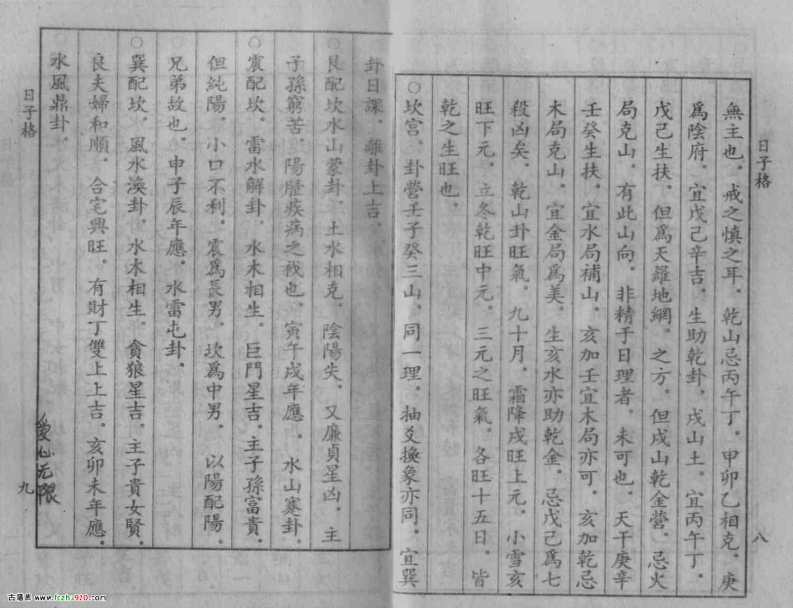 日子格
無主也．戒之慎之耳．乾山忌丙午丁．甲卯乙相克．庚
爲陰府．宜戊己辛吉．生助乾卦．戌山土．宜丙午丁．
戊己生扶．但爲天羅地網．之方．但戌山乾金營．忌火
局克山．有此山向．非精于日理者．未可也．天干庚辛
壬癸生扶．宜水局補山．亥加壬宜木局亦可．亥加乾忌
木局克山．宜金局爲美．生亥水亦助乾金．忌戊己爲七
殺凶矣．乾山卦旺氣．九十月．霜降戌旺上元．小雪亥
旺下元．立冬乾旺中元．三元之旺氣．各旺十五日．皆
乾之生旺也．
○坎宫．卦營壬子癸三山．同一理．抽爻換象亦同．宜巽
八
卦日課．離卦上吉．
○艮配坎水山蒙卦．土水相克．陰陽失．又廉貞星凶．主
子孫窮苦．陽膧疾病之
也．寅午戌年應．水山蹇卦．
○震配坎．雷水解卦．水木相生．巨門星吉．主子孫富貴．
但純陽．小口不利．震爲長男．坎爲中男．以陽配陽．
兄弟故也．申子辰年應．水雷屯卦．
○巽配坎．風水渙卦．水木相生．貪狼星吉．主子貴女賢．
良夫婦和順．合宅興旺．有財丁雙上上吉．亥卯未年應．
水風鼎卦．
日子格
九
爱心无限
古籍酱 www.fczhu920.com